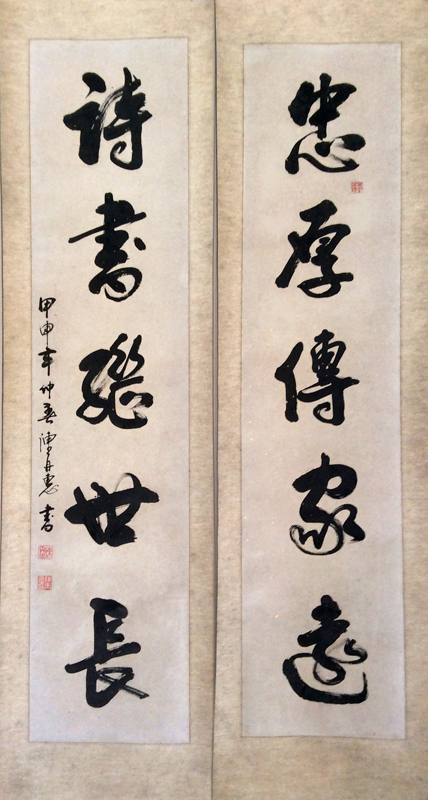 忠厚傳家遠
詩書繼世長
甲申年仲春書